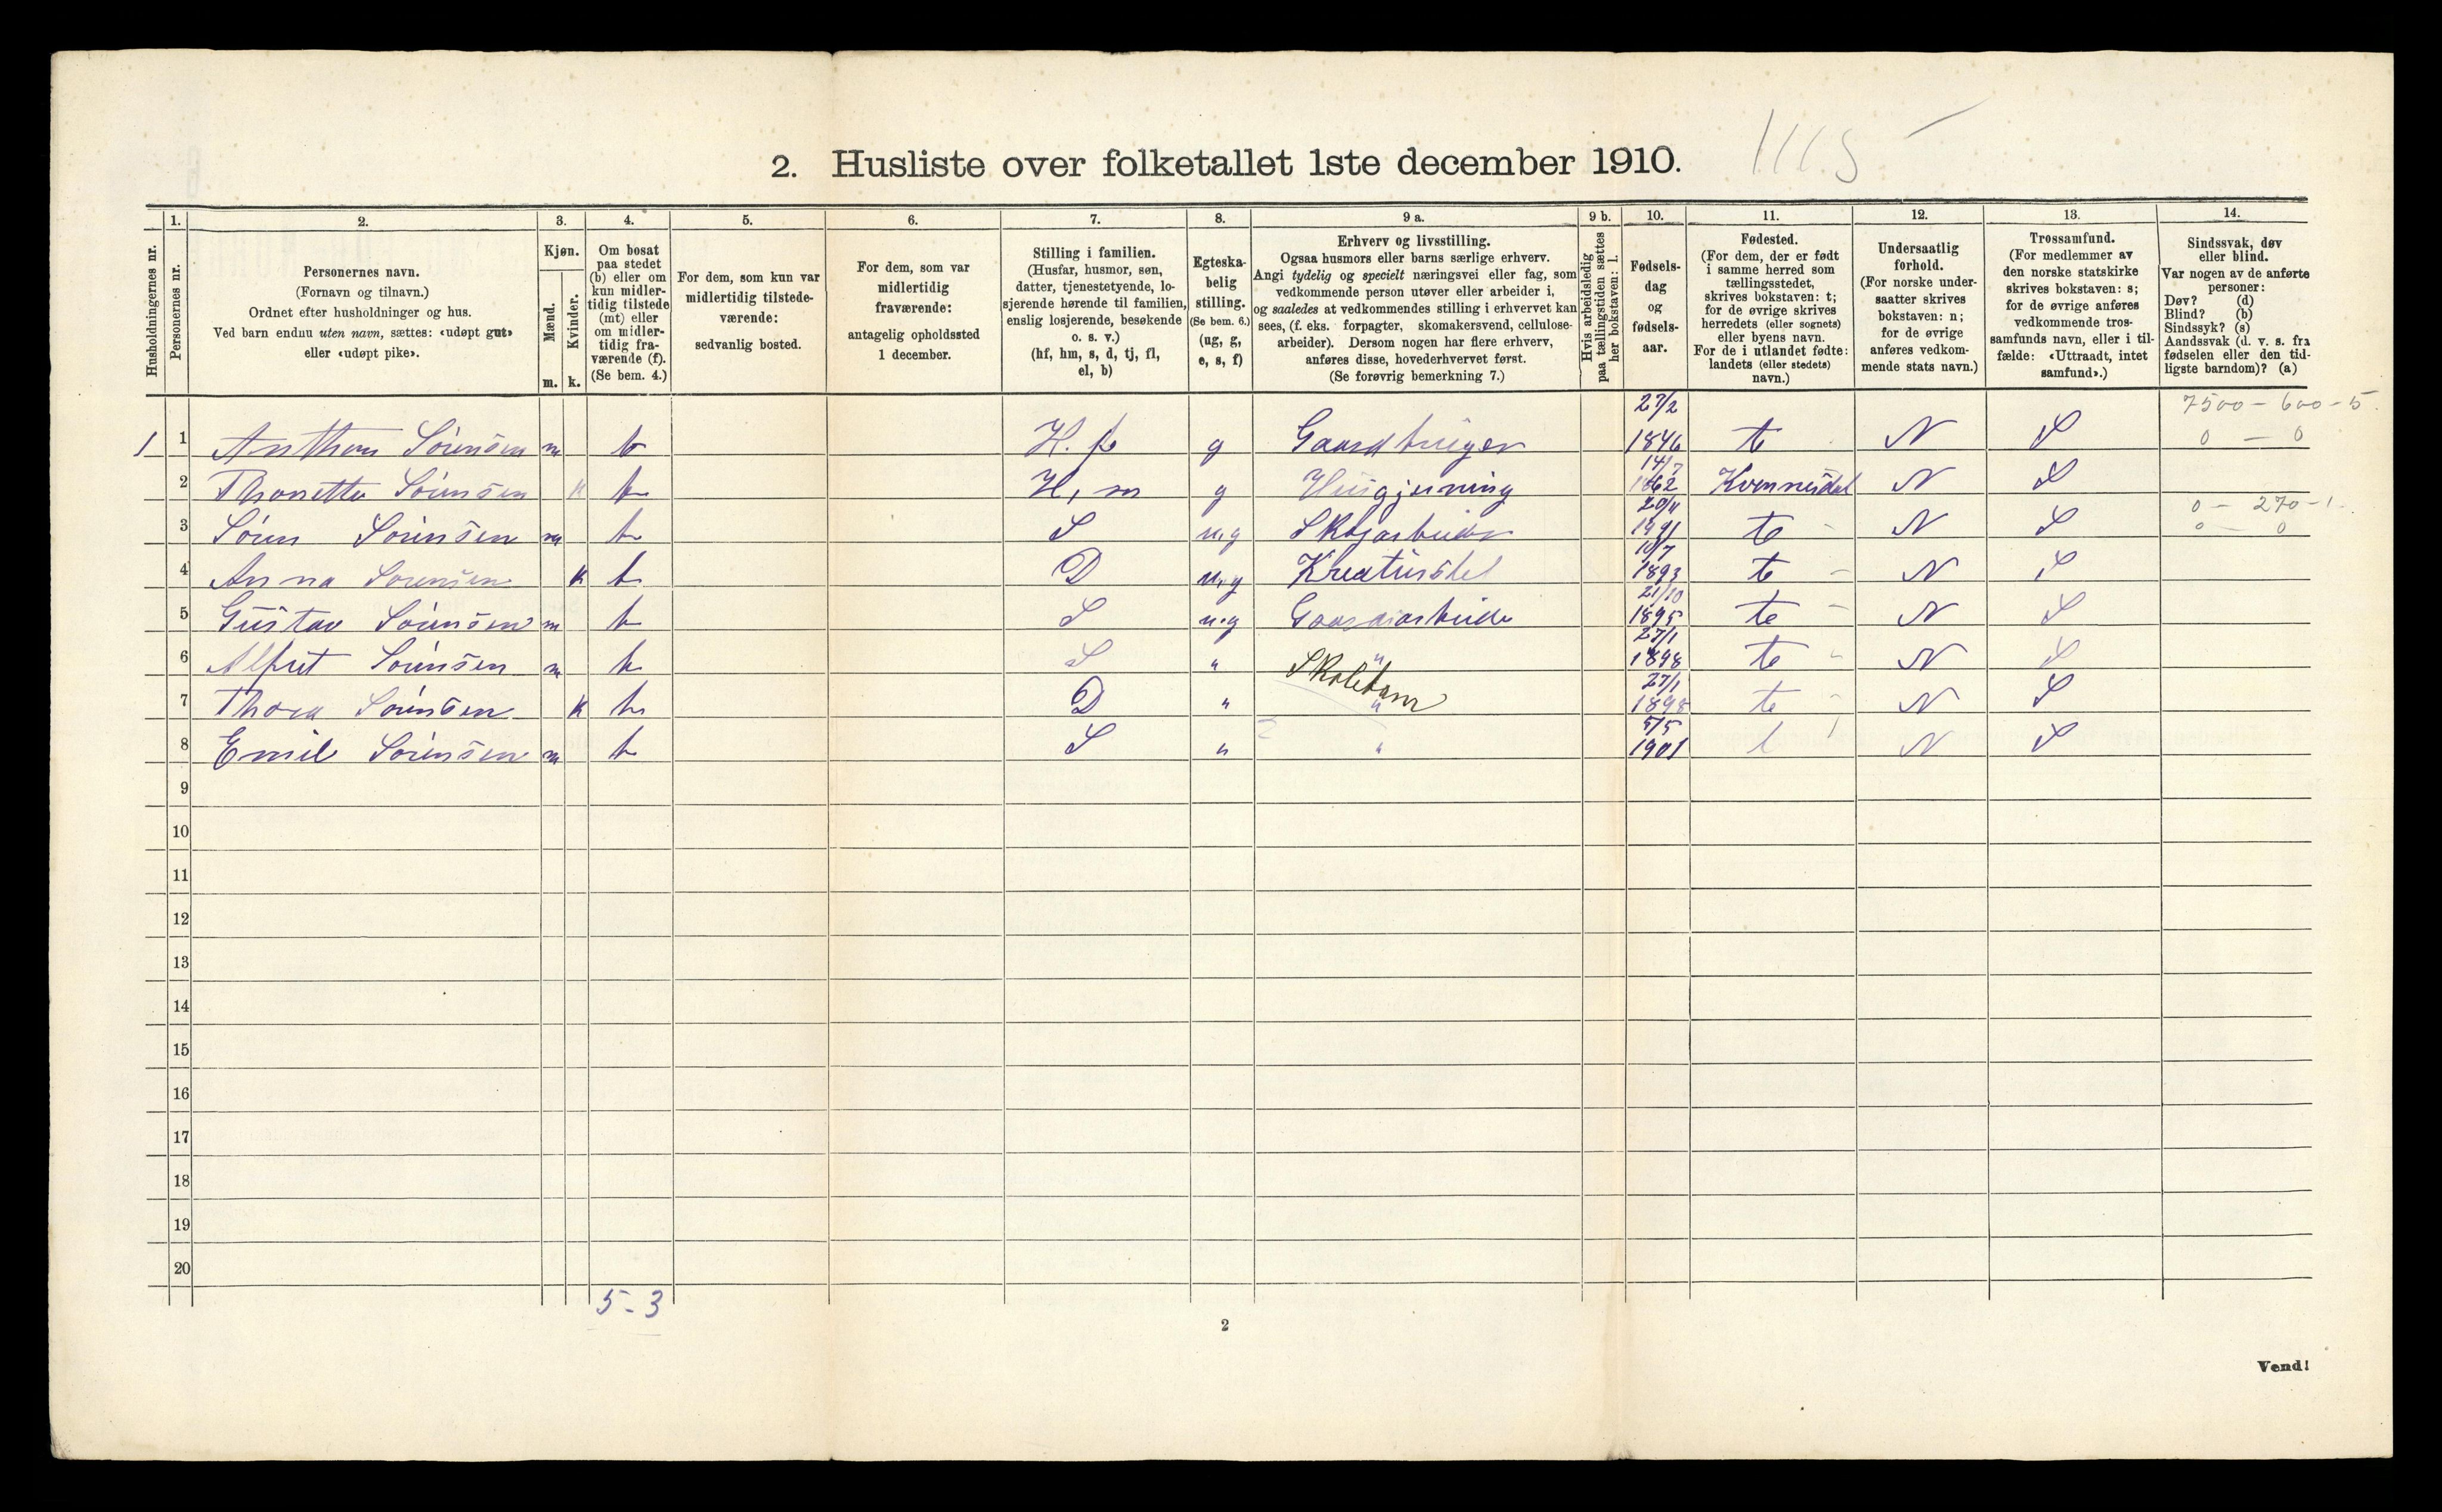 2. Husliste over folketallet 1ste december 1910. 1115
1. 2. 3. 4. 5. 6. 7. 8. 9 a. 9 b. 10. 11. 12. 13. 14.
Husholdningernes nr.
Personernes nr.
Personernes navn.
(Fornavn og tilnavn.)
Ordnet efter husholdninger og hus.
Ved barn endnu uten navn, sættes: «udøpt gut»
eller «udøpt pike».
Kjøn.
Mænd.
Kvinder.
m. k.
Om bosat
paa stedet
(b) eller om
kun midler-
tidig tilstede
(mt) eller
om midler-
tidig fra-
værende (f).
(Se bem. 4.)
For dem, som kun var
midlertidig tilstede-
værende:
sedvanlig bosted.
For dem, som var
midlertidig
fraværende:
antagelig opholdssted
1 december.
Stilling i familien.
(Husfar, husmor, søn,
datter, tjenestetyende, lo-
sjerende hørende til familien,
enslig losjerende, besøkende
o. s. v.)
(hf, hm, s, d, tj, fl,
el, b)
Egteska-
belig
stilling.
(Se bem. 6.)
(ug, g,
e, s, f)
Erhverv og livsstilling.
Ogsaa husmors eller barns særlige erhverv.
Angi tydelig og specielt næringsvei eller fag, som
vedkommende person utøver eller arbeider i,
og saaledes at vedkommendes stilling i erhvervet kan
sees, (f. eks. forpagter, skomakersvend, cellulose-
arbeider). Dersom nogen har flere erhverv,
anføres disse, hovederhvervet først.
(Se forøvrig bemerkning 7.)
Hvis arbeidsledig
paa tællingstiden sættes
her bokstaven: l.
Fødsels-
dag
og
fødsels-
aar.
Fødested.
(For dem, der er født
i samme herred som
tællingsstedet,
skrives bokstaven: t;
for de øvrige skrives
herredets (eller sognets)
eller byens navn.
For de i utlandet fødte:
landets (eller stedets)
navn.)
Undersaatlig
forhold.
(For norske under-
saatter skrives
bokstaven: n;
for de øvrige
anføres vedkom-
mende stats navn.)
Trossamfund.
(For medlemmer av
den norske statskirke
skrives bokstaven: s;
for de øvrige anføres
vedkommende tros-
samfunds navn, eller i til-
fælde: «Uttraadt, intet
samfund».)
Sindssvak, døv
eller blind.
Var nogen av de anførte
personer:
Døv? (d)
Blind? (b)
Sindssyk? (s)
Aandssvak (d. v. s. fra
fødselen eller den tid-
ligste barndom)? (a)
7500 - 600 - 5
1 1 Anthon Sörensen m b H. f g Gaardbruger 27/2 1846 t N S 0 - 0
2 Thonette Sörensen K b H, m g Husgjerning 14/7 1862 N S
0 - 270 - 1
3 Sören Sörensen m b S u.g Skogarbeider 20/4 1891 t N S 0 - 0
4 Anna Sörensen K b D u.g Kreaturstel 10/7 1893 t N S
5 Gustav Sörensen m b S u.g Gaardsarbeide 21/10 1895 t N S
6 Alfret Sörensen m b S " " Skolebarn 27/1 1898 t N S
7 Thora Sörensen K b D " " 27/1 1898 t N S
8 Emil Sörensen m b S " " 5/5 1901 t N S
9
10
11
12
13
14
15
16
17
18
19
20
5 - 3
2
Vend!